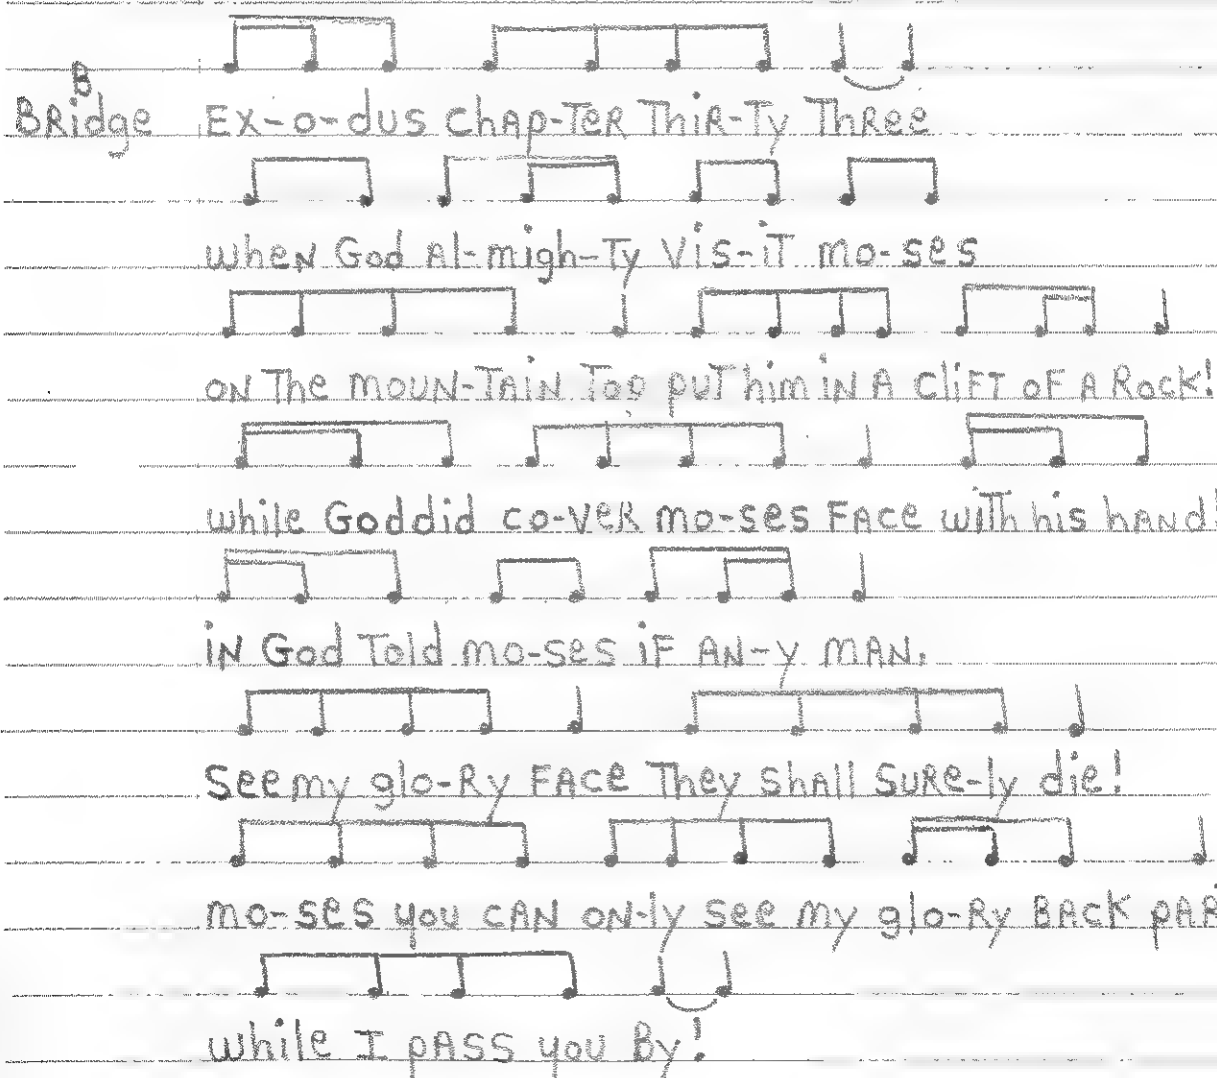 B
BRidge EX-o-dus chAp-TeR ThiR-Ty ThRee
wheN God Al-migh-Ty Vis-iT mo-ses
oN The mouN-TAiN Top puT him iN A CliFT oF A Rock!
while God did co-veR mo-ses FAce wiTh his hANd!
iN God Told mo-ses iF AN-y mAN.
See my glo-Ry FAce They shAll SuRe-ly die!
mo-ses you cAN oN-ly see my glo-Ry BAck pAR
while I pASS you By!